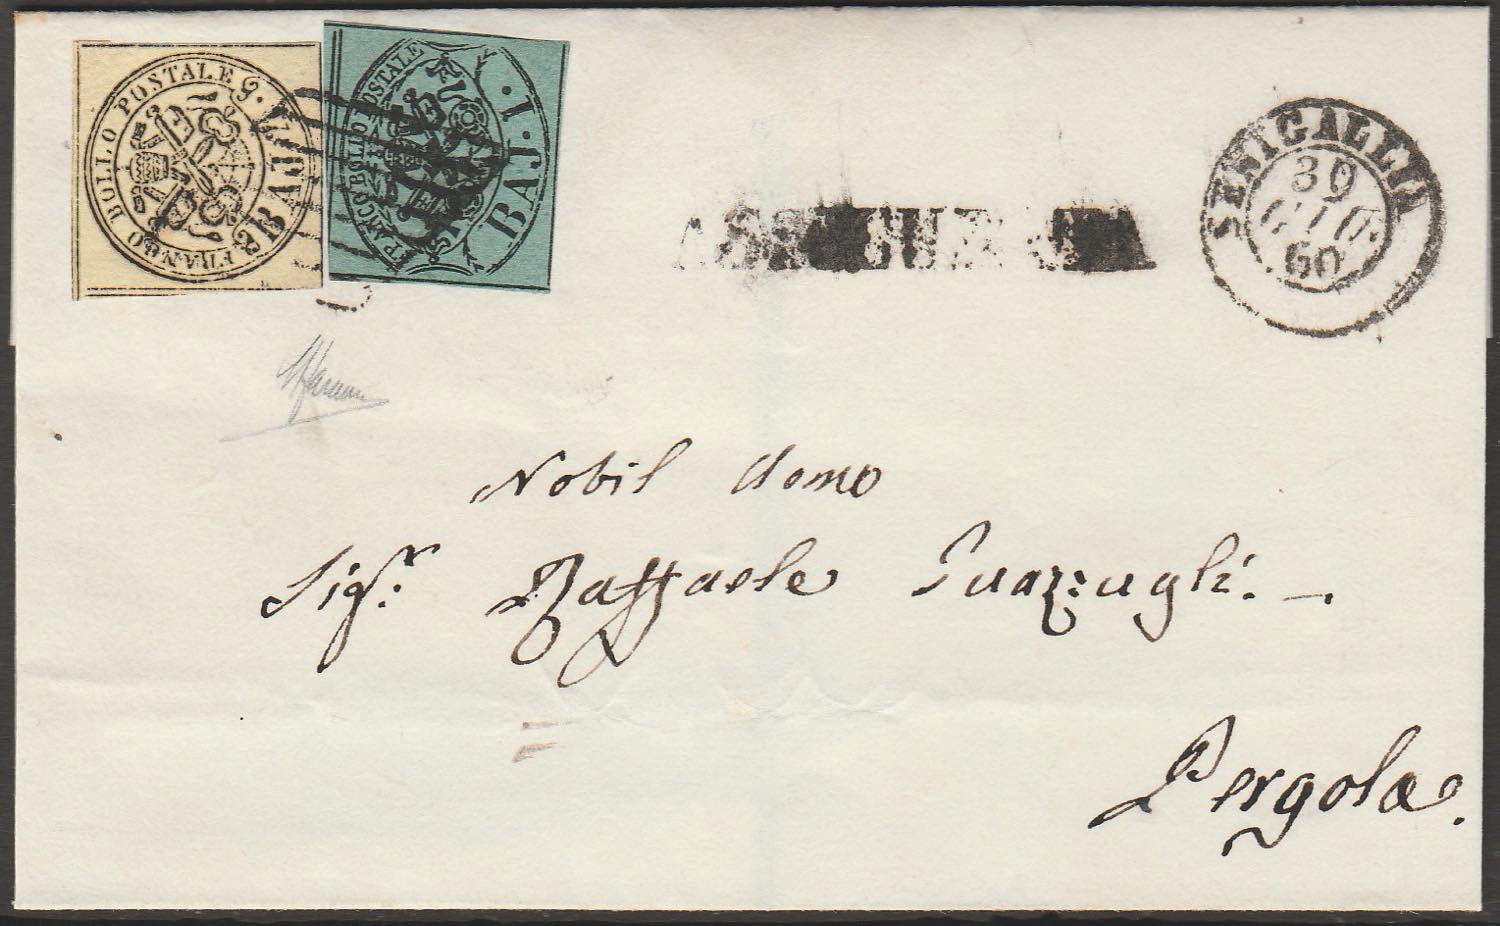 FRANCO BOLLO POSTALE
BAJ
FRANCO BOLLO POSTALE
BAJ. 1.
ASSICURATA
SENIGALLIA
30
GIU.
60
Nobil Uomo
Sig.r Raffaele Guazzugli. —.
Pergola.